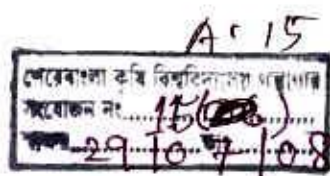 A ৫ 15
শেরেবাংলা কৃষি বিশ্ববিদ্যালয় গ্রন্থাগার
সংযোজন নং 15
29/07/08